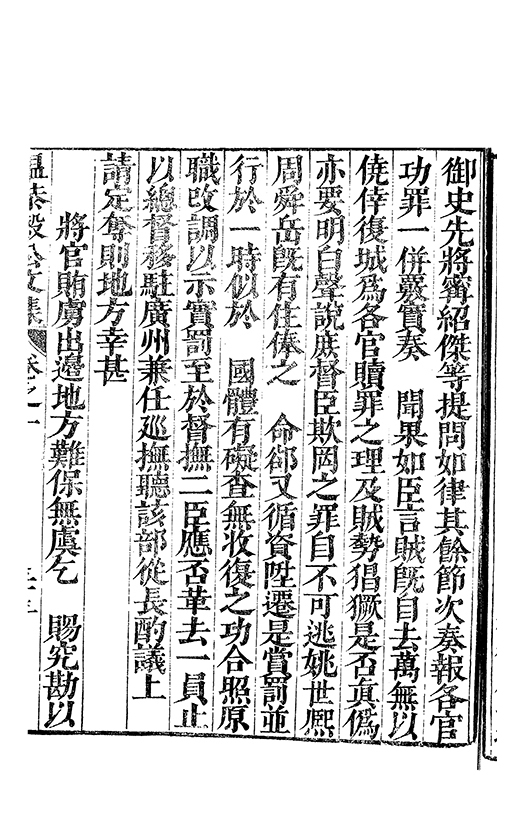 御史先將甯紹傑等提問如律其餘節次奏報各官
功罪一併覈實奏　聞果如臣言賊旣自去萬無以
僥倖復城爲各官贖罪之理及賊勢猖獗是否眞僞
亦要明白聲說庶督臣欺罔之罪自不可逃姚世熙
周舜岳旣有住俸之　命郤又循資陞遷是賞罰並
行於一時似於　國體有礙查無收復之功合照原
職改調以示實罰至於督撫二臣應否革去一員止
以總督移駐廣州兼任廵撫聽該部從長酌議上
請定奪則地方幸甚
將官賄虜出邊地方難保無虞乞　賜究勘以
溫恭毅公文集
卷之一